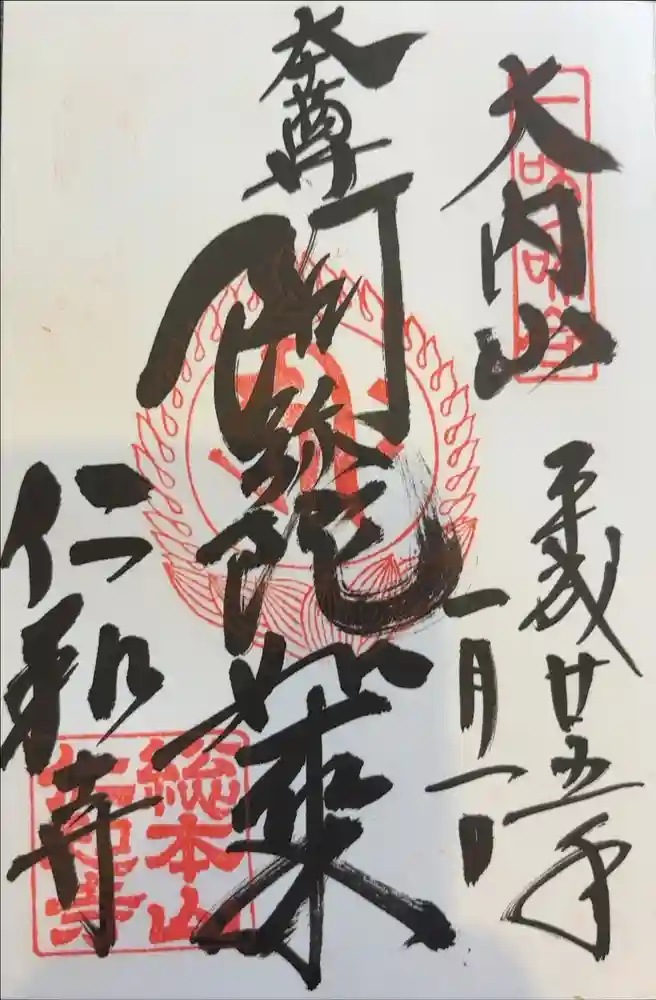 大内山
平成廿五年
一月一日
本尊
阿弥陀如来
仁和寺
総本山
仁和寺